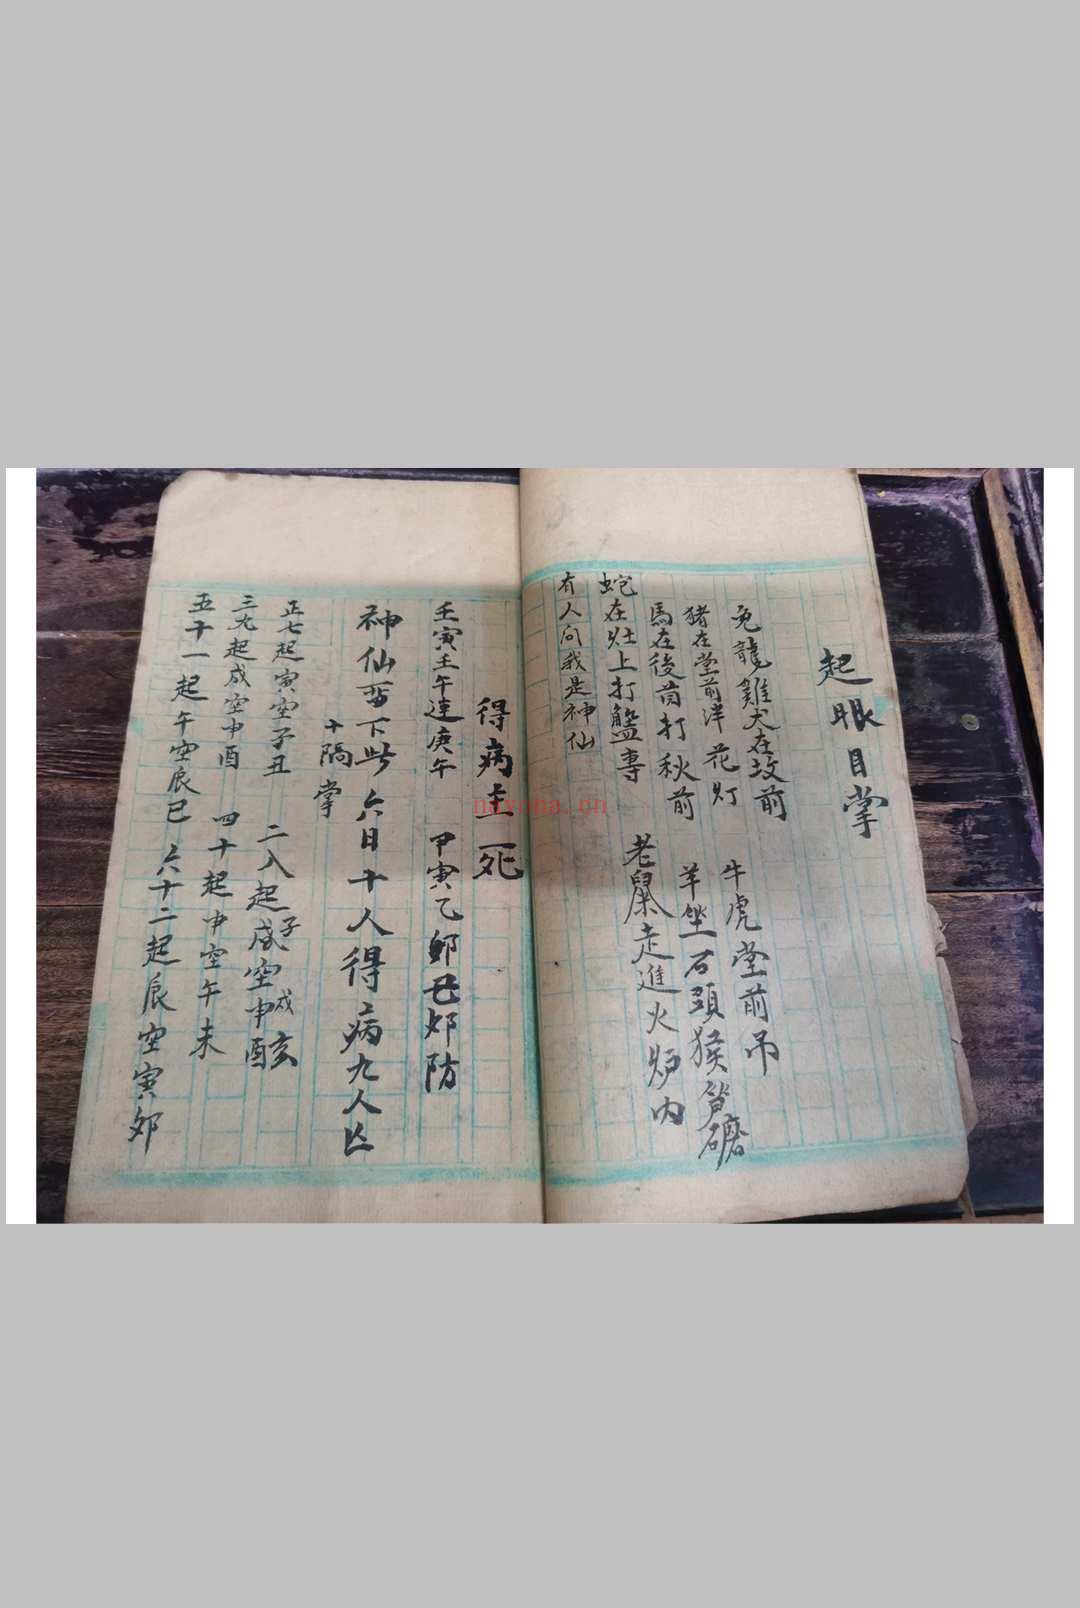 起眼目掌
兎龍雞犬在坟前 牛虎堂前吊
猪在堂前洋花灯 羊坐石頭猴 磨
馬在後 打秋前 老鼠走進火炉内
蛇在灶上打 專
有人问我是神仙
得病主死
壬寅壬午連庚午 甲寅乙夘 夘防
神仙留下此六日十人得病九人亡
十隔掌
正七起寅空子丑 二八起子空戌亥
三九起戌空申酉 四十起申空午未
五十一起午空辰巳 六十二起辰空寅夘
nayona.cn